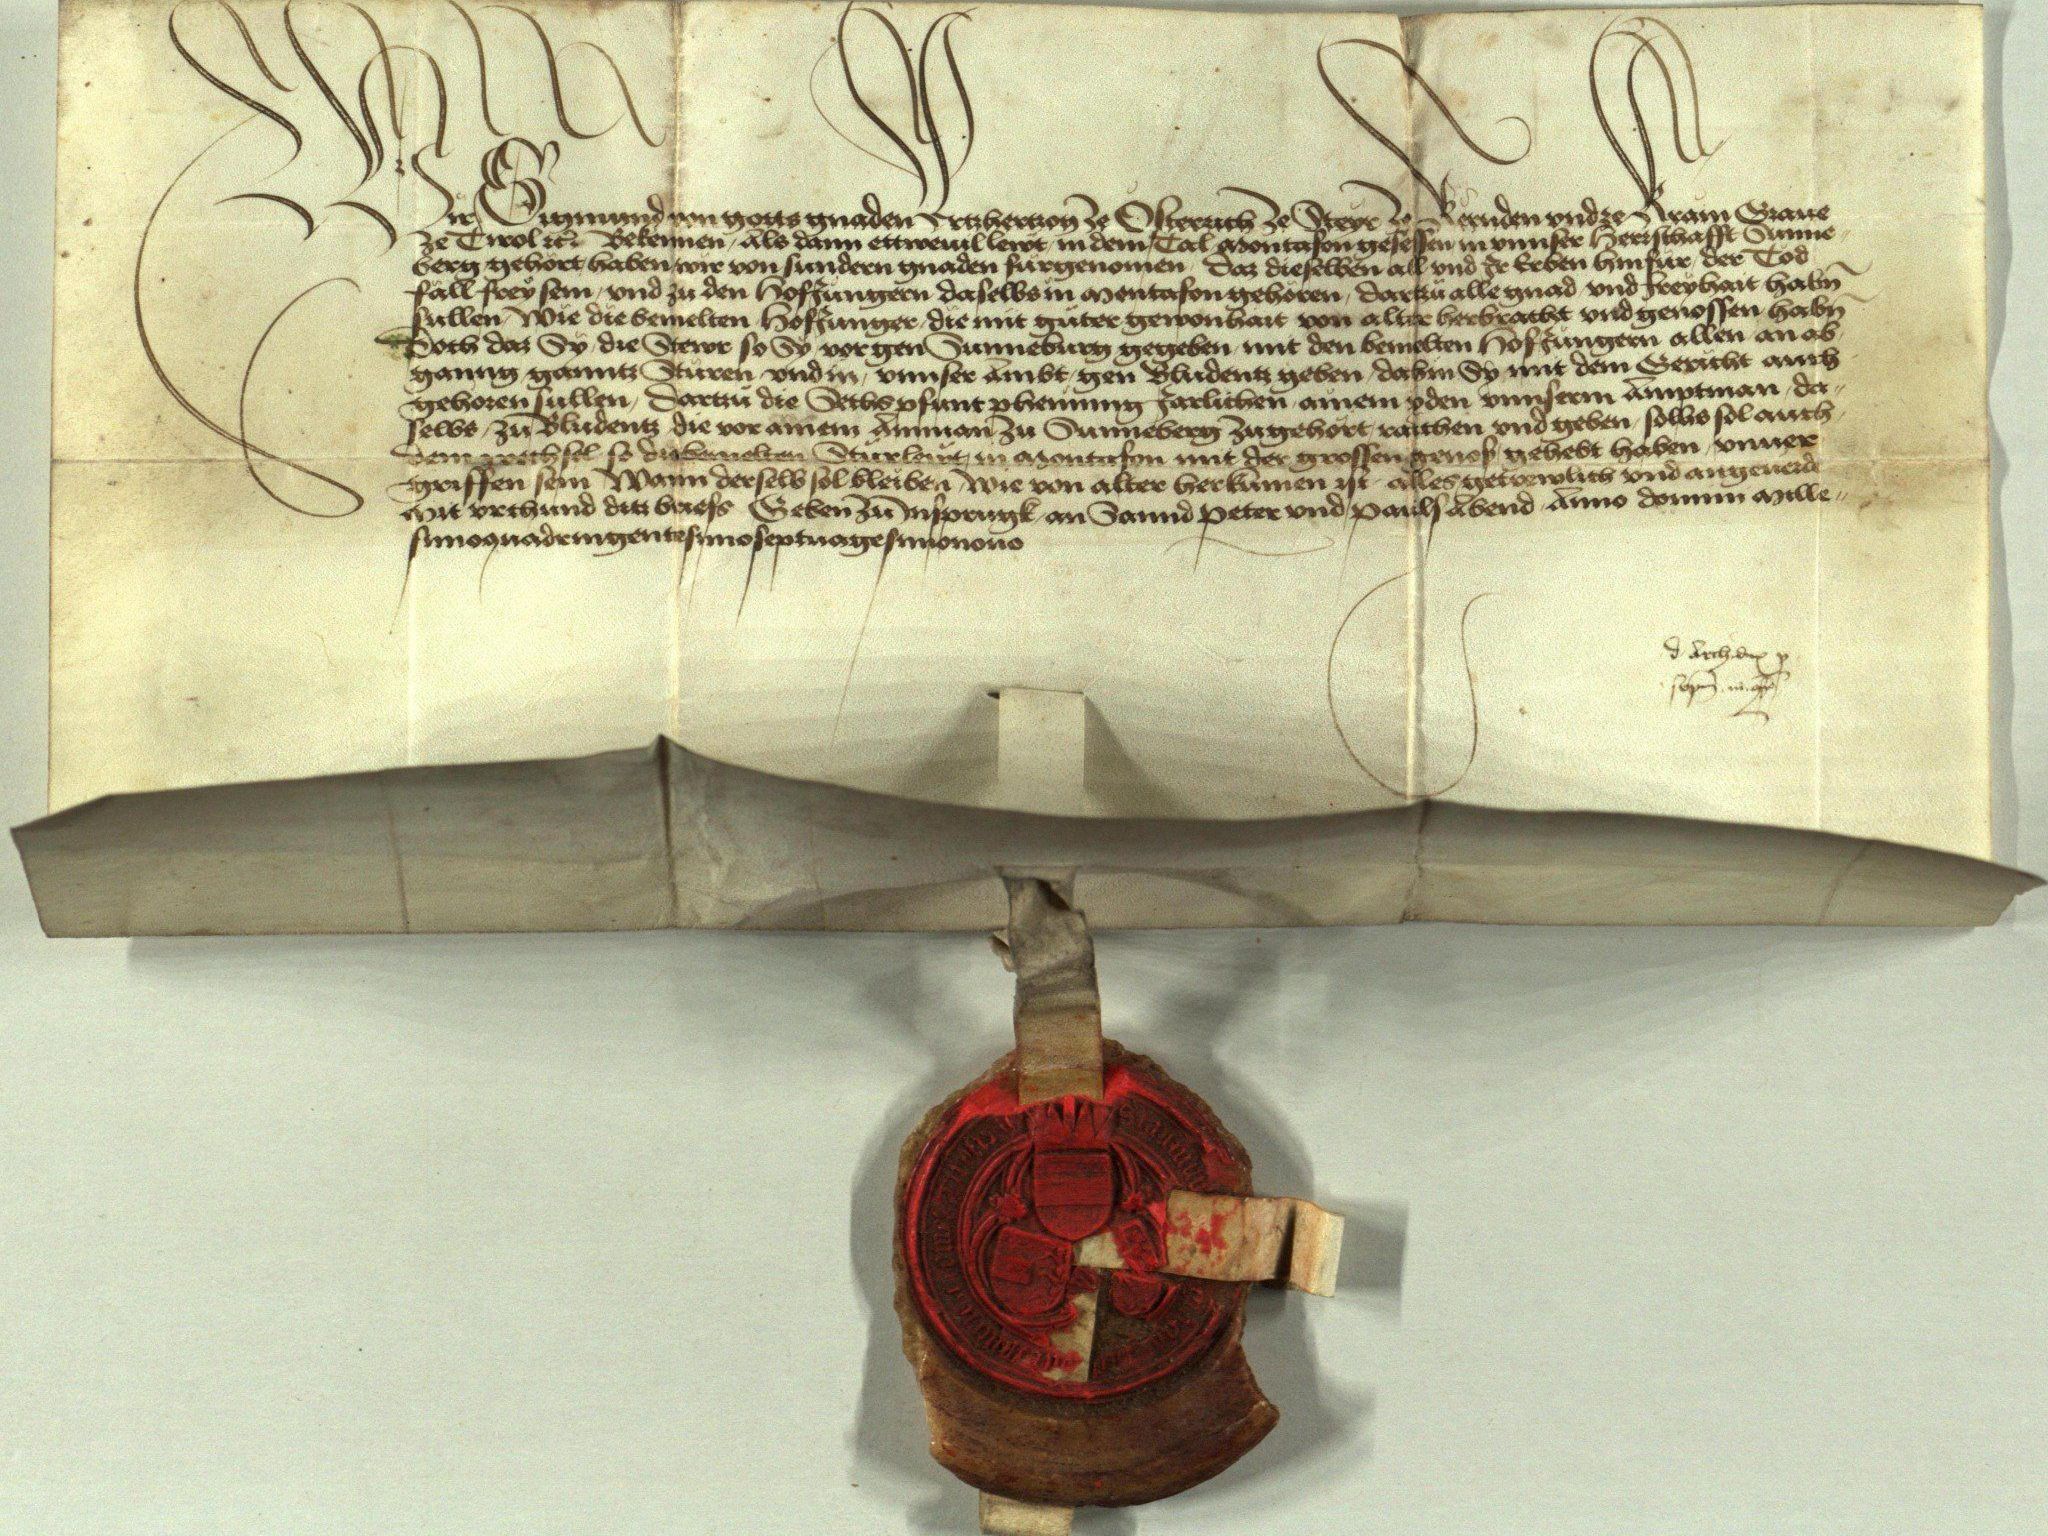 Wir Sigmund von gotts gnaden Ertzhertzog ze Osterrich ze Steyr ze Kernden vnd ze Krain Graue
ze Tirol etc Bekennen, Als dann ettweuil lewt, in dem Tal Montafon gesessen in vnnser Herrschafft Sunne-
berg gehört haben, wir von sundern gnaden fürgenomen, Daz dieselben all vnd Jr Erben hinfür, der Tod
fäll frey sein, vnd zu den Hofjüngern daselbs in Montafon gehören, dartzü alle gnad vnd freyhait habn
sullen, Wie die bemelten Hofjünger, die mit güter gewonhait von alter herbracht vnd genossen habn
Doch daz Sy, die Stewr so Sy, vor gen Sunneburg gegeben, mit den bemelten Hofjüngern allen an ab
ganng ganntz Stüren vnd in, vnnser Ambt, gen Bludentz geben, dahin Sy mit dem Gericht auch
gehoren sullen, Dartzü die Sechs pfunt phenning Järlichen, ainem yden vnnserm Amptman, da-
selbs, zü Bludentz die vor ainem Amman zu Sunneberg zügehört, raichen vnd geben, solhs sol auch
dem wechsel so die bemelten Stürlewt, in Montafon mit der grossen genoß gehebt haben, vnuer
griffen sein Wann derselb sol bleiben, Wie von alter herkumen ist, alles getrewlich vnd angeuerde
Mit vrchund ditz briefs Geben zü Insprugk, an Sannd Peter vnd Pauls Abend, Anno domini Mille-
simoquadringentesimoseptuagesimonono
d Archidux p